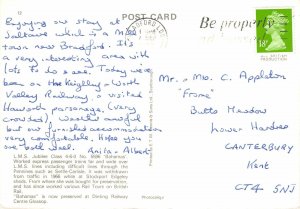 12
POST CARD
Enjoying our stay at
Saltaire which is a Mill
town near Bradford. It's
a very interesting area with
lots to do & see. Today we've
been on the Keighley - Worth
Valley Railway & visited
Haworth parsonage, (very
crowded). Weather awful
but our furnished accommodation
very comfortable. Hope you
are both well. Anita - Albert
L.M.S. Jubilee Class 4-6-0 No. 5596 "Bahamas".
Worked express passenger trains for the
LMS, including difficult lines through the
Pennines such as Settle-Carlisle. It was
withdrawn from traffic in 1966 while at Stockport Edgeley
Shed. From where she was bought for preservation
and has since worked various Rail Tours on British
Rail.
"Bahamas" is now preserved at Dinting Railway
Centre Glossop.
Be property
18P
BRITISH
PRODUCTION
Mr. & Mrs. C. Appleton
"Frome"
Butts Meadow
Lower Hardres
CANTERBURY
Kent
CT4 5NJ